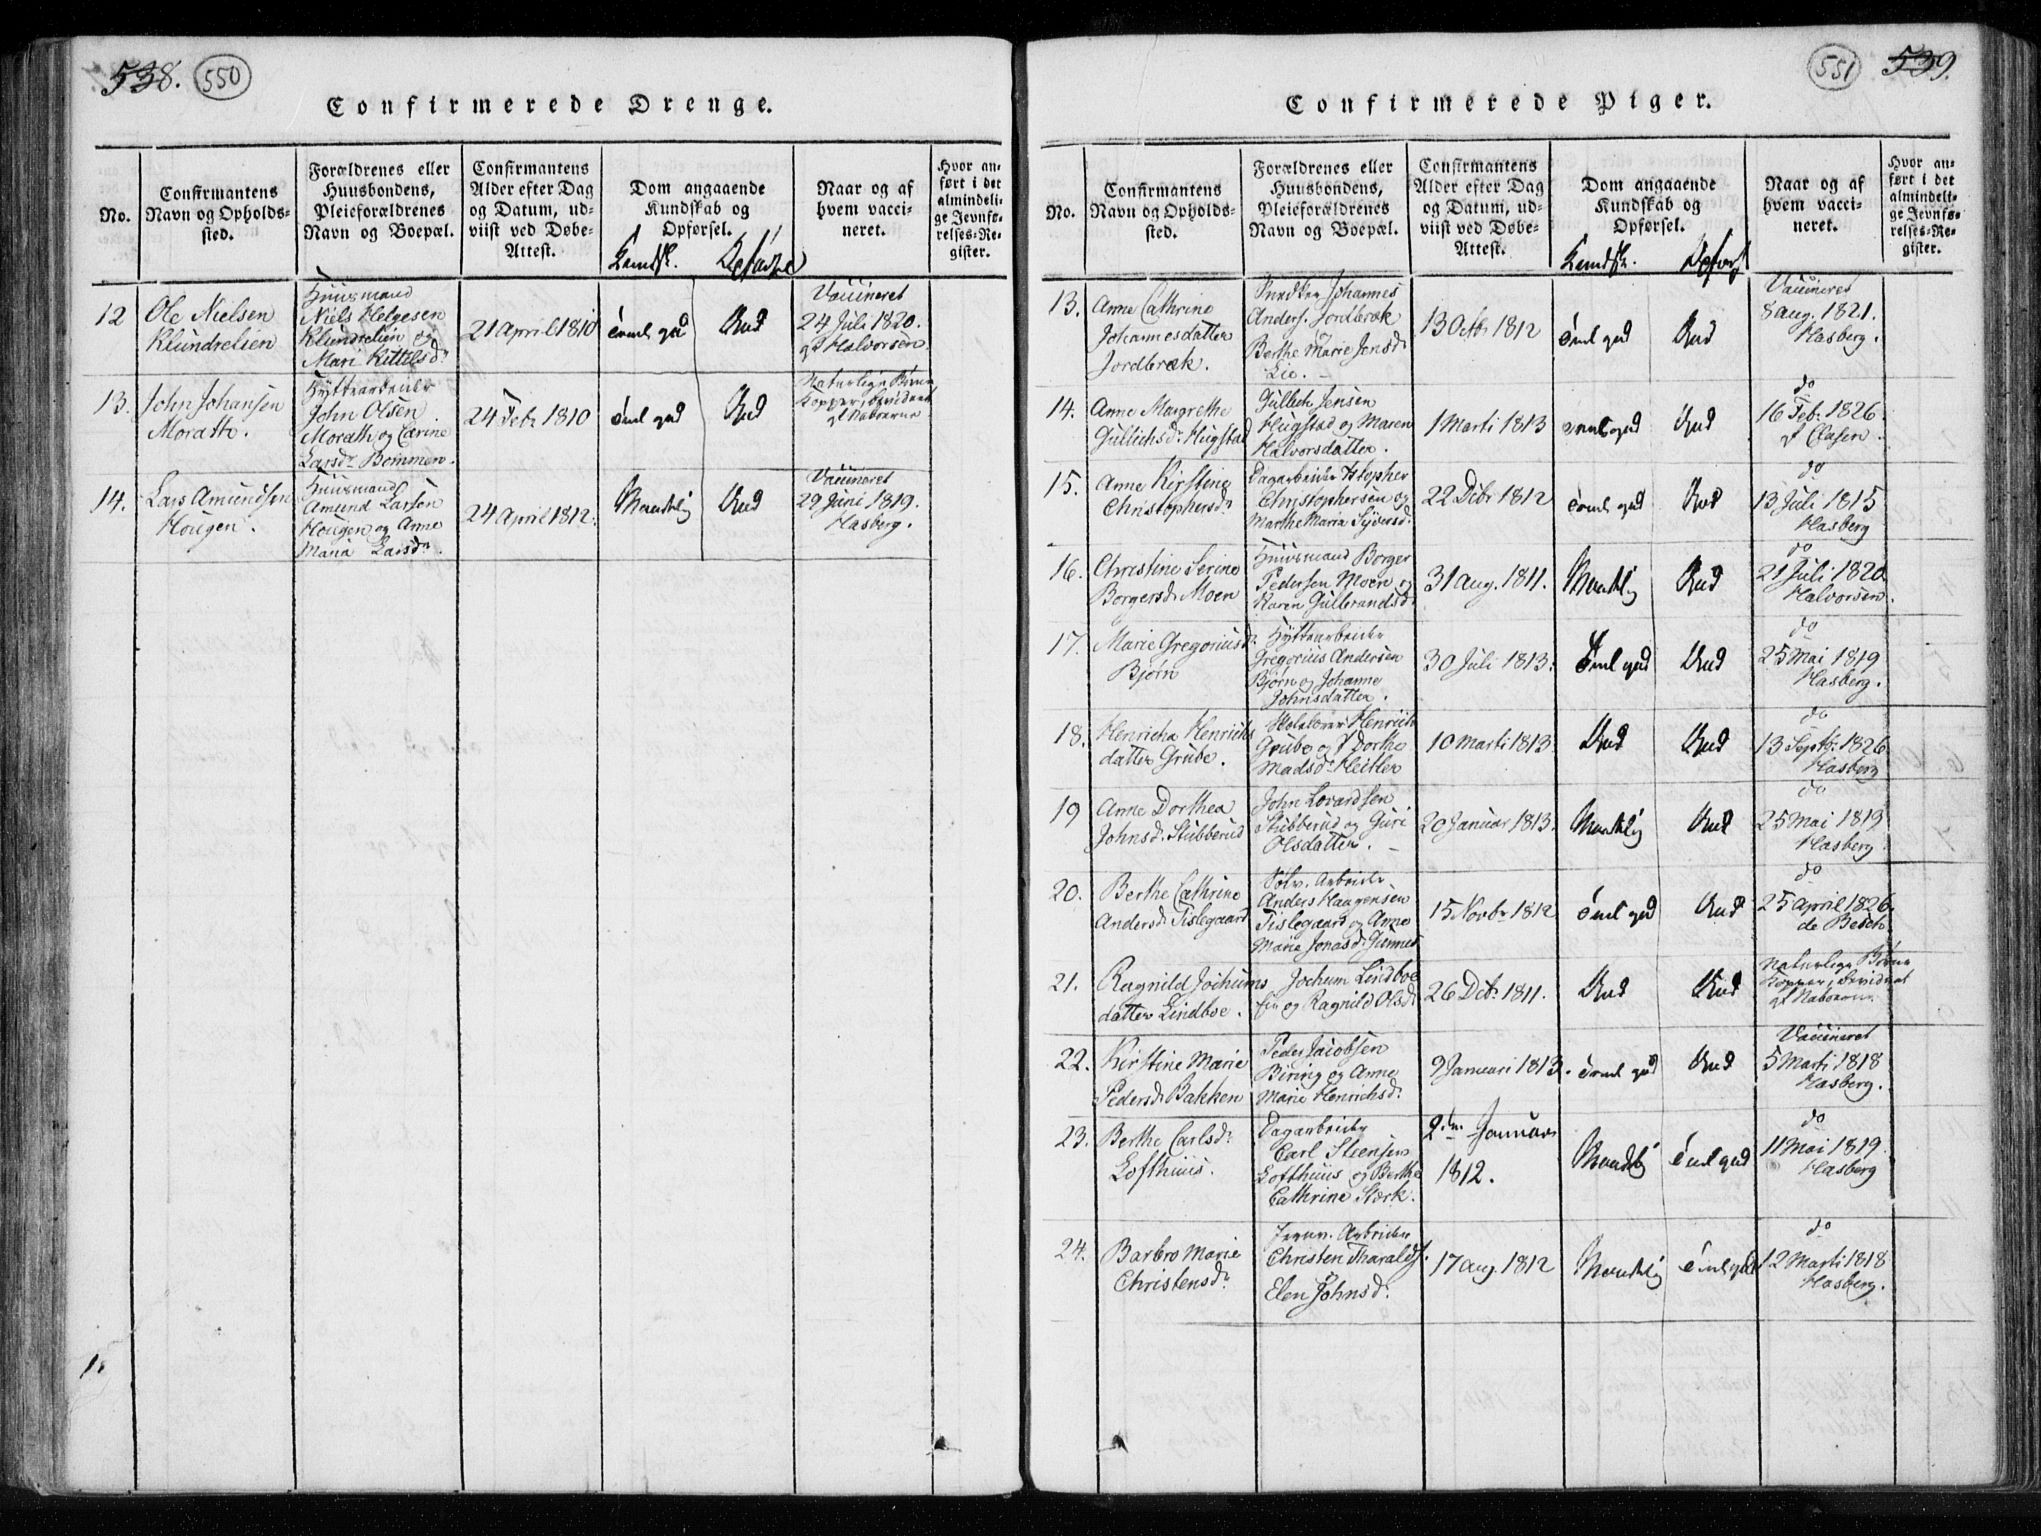 538. 550
Confirmerede Drenge.
No.
Confirmantens
Navn og Opholds-
sted.
Forældrenes eller
Huusbondens,
Pleieforældrenes
Navn og Boepæl.
Confirmantens
Alder efter Dag
og Datum, ud-
viist ved Døbe-
Attest.
Dom angaaende
Kundskab og
Opførsel.
Kundsk.
Naar og af
hvem vacci-
neret.
Hvor an-
ført i det
almindeli-
ge Jevnfø-
relses-Re-
gister.
12
Ole Nielsen
Klundrelien
Huusmand
Niels Helgesen
Klundrelien og
Mari Kittelsdr
21 April 1810
Gud
Vaccineret
24 Juli 1820.
af Halvorsen
13.
John Johansen
Morath.
Hyttearbeider
John Olsen
Morath og Carine
Larsdr Bommen.
24 Febr 1810
Gud
Naturlige Børne
Kopper,
af Naboerne
14.
Lars Amundsen
Hougen.
Huusmand
Amund Larsen
Hougen og Anne
Maria Larsdr.
24 April 1812.
Gud
Vaccineret
29 Juni 1819.
Hasberg.
551 539.
Confirmerede Piger.
No.
Confirmantens
Navn og Opholds-
sted.
Forældrenes eller
Huusbondens,
Pleieforældrenes
Navn og Boepæl.
Confirmantens
Alder efter Dag
og Datum, ud-
viist ved Døbe-
Attest.
Dom angaaende
Kundskab og
Opførsel.
Kundsk. Opførs
Naar og af
hvem vacci-
neret.
Hvor an-
ført i det
almindeli-
ge Jevnfø-
relses-Re-
gister.
13.
Anne Cathrine
Johannesdatter
Jordbræk.
Johannes
Anders. Jordbræk
Berthe Marie Jensdr
Lie.
13 Octbr 1812
Vaccineret
8 aug. 1821.
Hasberg.
14.
Anne Margrethe
Gullichsdr Hugstad
Gullich Jensen
Hugstad og Maren
Halvorsdatter.
1 Marti 1813
do
16 Feb. 1826.
af Olasen.
15.
Anne Kirstine
Christophersdr
Dagarbeider Xstopher
Christophersen og
Marthe Maria Syversdr
22 Decbr 1812
do
13 Juli 1815
Hasberg
16.
Christine Serine
Borgersdr Moen
Huusmand Borger
Pedersen Moen og
Karen Gulbrandsdr
31 Aug. 1811.
do
21 Juli 1820
Halvorsen.
17.
Marie Gregoriusdr
Bjørn
Hyttearbeider
Gregorius Andersen
Bjørn og Johanne
Johnsdatter.
30 Juli 1813.
do
25 Mai 1819
Hasberg.
18.
Henricha Henrichs
datter Grube.
Henrich
Grube og Dorthe
Madsdr Heitler
10 Marti 1813.
do
13 Septbr. 1826
Hasberg
19
Anne Dorthea
Johnsdr Stubberud
John Lovardsen
Stubberud og Guri
Olsdatter.
20 Januar 1813.
do
25 Mai 1819
Hasberg
20.
Berthe Cathrine
Andersdr Tislegaard
Sølv. Arbeider
Anders Haagensen
Tislegaard og Anne
Marie Jonasdr Gunnes
15 Novbr 1812
do
25 April 1826.
de Besch.
21.
Ragnild Jochums
datter Lindboe.
Jochum Lindboe
og Ragnild Olsdr
26 Decbr. 1811.
Naturlige Børne
Kopper,
af Naboerne
22.
Kirstine Marie
Pedersdr Bakken
Peder Jacobsen
Biring og Anne
Marie Henrichsdr
2 Januari 1813.
Vaccineret
5 Marti 1818
Hasberg.
23.
Berthe Carlsdr
Lofthuus.
Dagarbeider
Carl Steensen
Lofthuus og Berthe
Cathrine Stærk.
2den Januar
1812.
do
11 Mai 1819.
Hasberg
24.
Barbro Marie
Christensdr
Jernv. Arbeider
Christen Tharaldsr.
Elen Johnsdr.
17 Aug. 1812
do
12 Marti 1818
Hasberg.